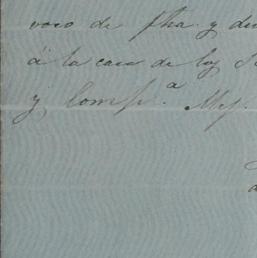 voco de fha. y du
á la casa de los S
y Compª. Mej.